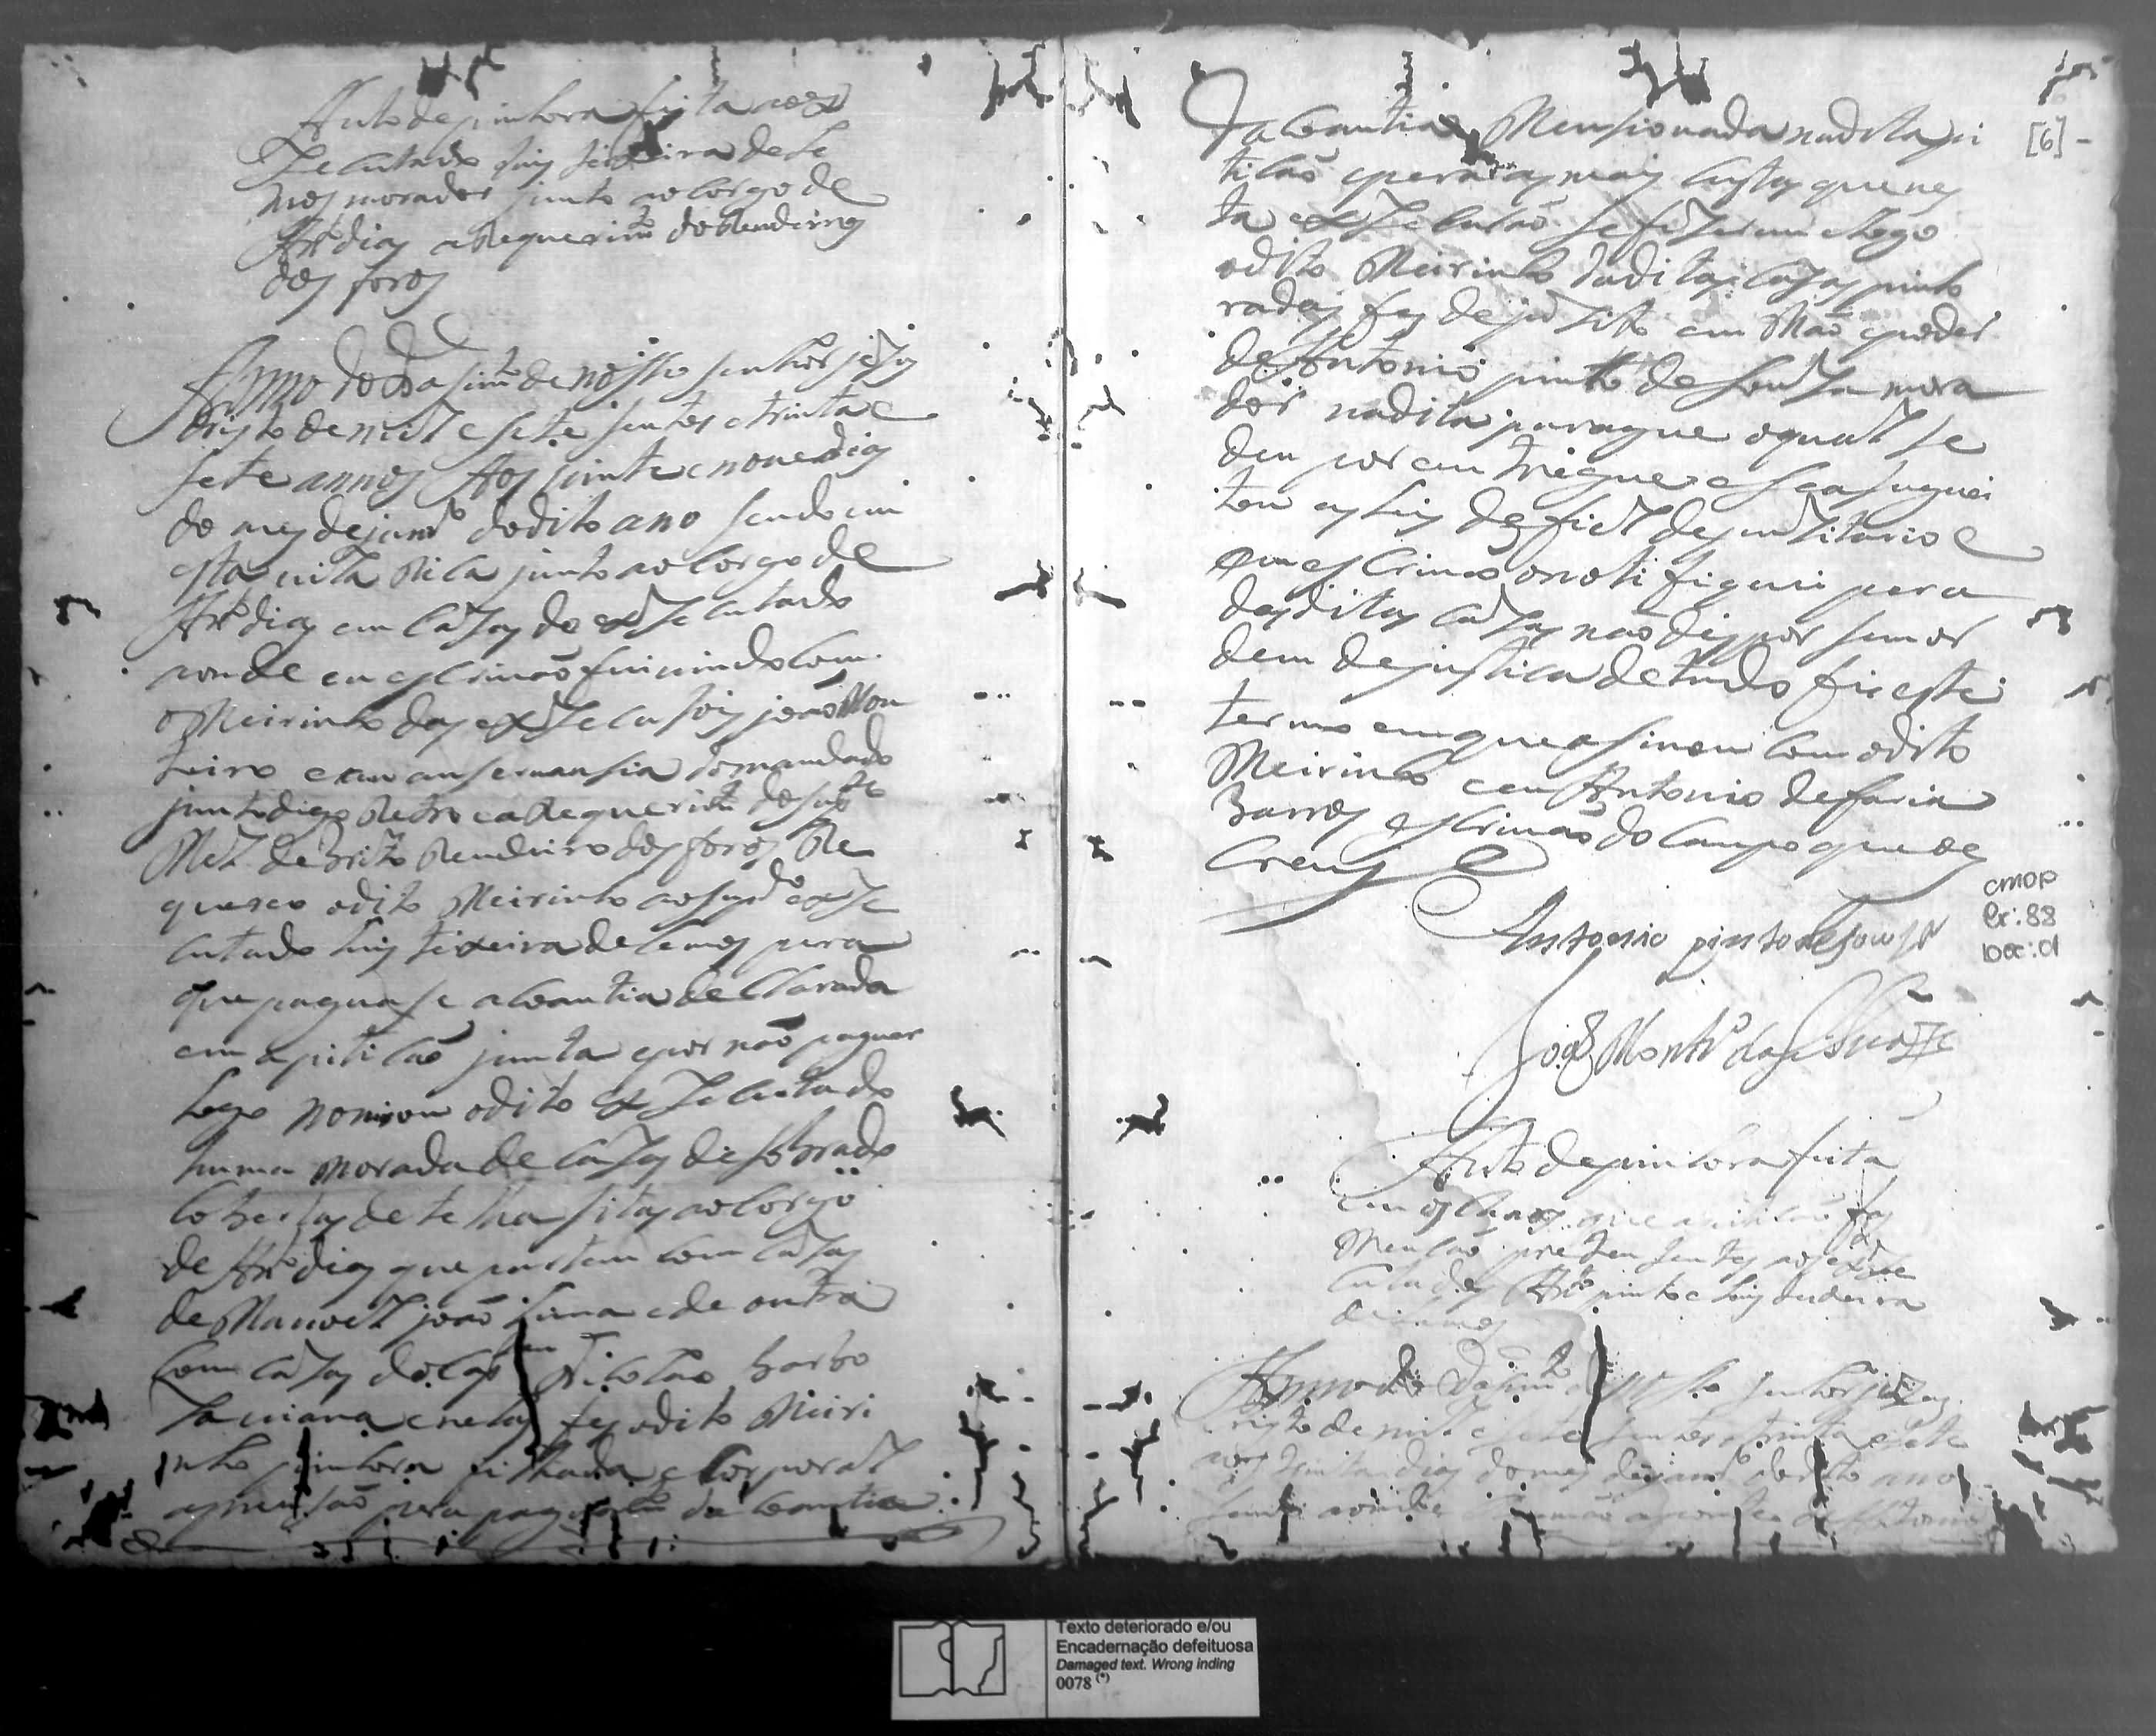 Auto de pinhora feita ao ex
Zecutado luis teixeira de le
mos morador junto ao corgo de
Antº dias a Requerimtº do Rendeiro
dos foros
Anno do Nasimtº de nosso senhor jezus
Cristo de mil e sete sentos e trinta e
sete annos Aos vinte e nove dias
do mes de junº do dito ano sendo em
esta villa Rica junto ao corgo de
Antº dias em cazas do exzecutado
aonde eu escrivão fui vindo com
o Meirinho das exzecusois joão Mon
teiro e em
junto digo Retro e a Requerimtº do supte
Mel de brito Rendeiro dos foros Re
quereo o dito Meirinho ao supdo exze
cutado luis teixeira de lemos pera
que paguase a coantia declarada
em a piticão junta e por não paguar
logo nomiou o dito exzecutado
huma morada de cazas de sobrado
cobertas de telha sitas ao corgo
de Antº dias que partem com cazas
de Manoel joão lima e de outra
com cazas do capam Nicolao barbo
za viana e nelas fes o dito Meiri
nho pinhora filhada e corporal
aprensão pera pagamtº da coantia
Da coantia Mensionada na dita pi
ticão e pera as mais custas que nes
ta exzecusão se fizerem e logo
o dito Meirinho das ditas cazas pinho
radas fes depozito em Mão e poder
de Antonio pinto de souza mora
dor na dita paraque o qual se
deu por entregue e se asuguei
tou as leis de fiel depuzitario e
eu escrivão o notifiquei pera
das ditas cazas não dispor sem or
dem de justica de tudo fis este
termo em que asinou com o dito
Meirinho e eu Antonio de faria
barros escrivão do campo que o es
crevy
Antonio pinto de souza
João Montrº da Silva
Auto de pinhora feita
em os chãos que a piticão fas
Mencão pretensentes aos exze
cutados Antº pinto e luis
de lemos
Anno do Nasimtº de nosso senhor jezus
Cristo de mil e sete sentos e trinta e sete
aos trinta dias do mes de junº do dito ano
[6]
CMOP
Cx: 88
Doc: 01
Texto deteriorado e/ou
Encadernação defeituosa
Damaged text. Wrong inding
0078 (*)